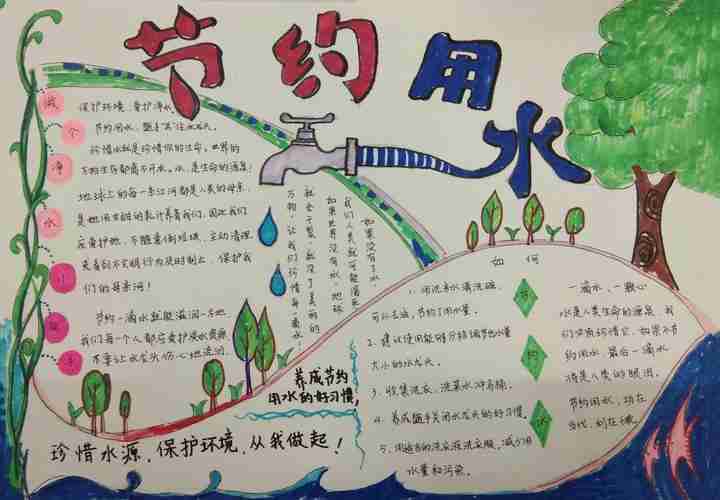 节约用水
做
个
净
水
小
卫
士
保护环境,爱护净水
节约用水,随手关住水龙头。
珍惜水就是珍惜你的生命,世界的
万物生存都离不开水,水,是生命的源泉!
地球上的每一条江河都是人类的母亲,
是她用甘甜的乳汁养育我们,因此我们
应爱护她,不随意倒垃圾,主动清理
来看到不文明行为及时制止,保护我
们的母亲河!
节约一滴水就能滋润一方地
我们每一个人都应爱护淡水资源
不要让水龙头伤心地流泪。
如果没有了水,
我们人类就可能消失
如果世界没有水,地球
就会干裂,就没了美丽的
万物,让我们珍惜每一滴水。
养成节约
用水的好习惯,
珍惜水源,保护环境,从我做起!
如何
节
约
水
1、用洗米水清洗碗,
可以去油,节约了用水量。
2、建议使用能够分档调节出水量
大小的水龙头。
3、收集洗衣、洗菜水冲马桶。
4、养成随手关闭水龙头的好习惯。
5、用适当的洗衣液洗衣服,减少用
水量和污染。
一滴水,一颗心
水是人类生命的源泉,我
们必须珍惜它,如果不节
约用水,最后一滴水
将是人类的眼泪。
节约用水,功在
当代,利在千秋。